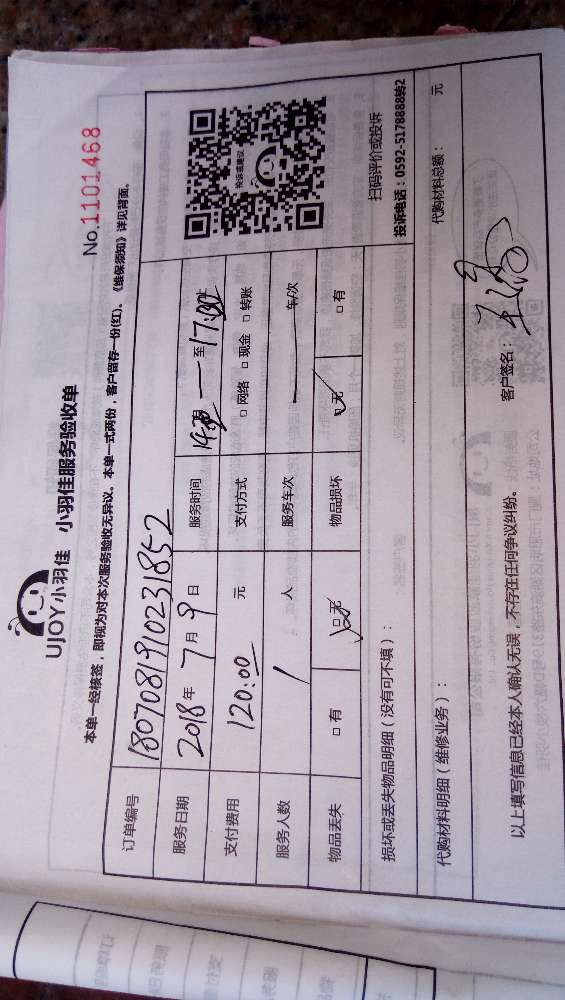 UJOY小羽佳 小羽佳服务验收单
No.1101468
本单一经核签，即视为对本次服务验收无异议。本单一式两份，客户留存一份(红)。《维保须知》详见背面。
订单编号 180708191023​1852
服务日期 2018年 7月 9日 服务时间 14:30 — 至 17:30
支付费用 120:00 元 支付方式 □网络 □现金 □转账
服务人数 1 人 服务车次 — 车/次
物品丢失 □有 □无 物品损坏 □无 □有
投诉或建议
扫码评价或投诉
投诉电话：0592-5178888转2
损坏或丢失物品明细（没有可不填）：
代购材料明细（维修业务）： 代购材料总额： 元
以上填写信息已经本人确认无误，不存在任何争议纠纷。 客户签名：